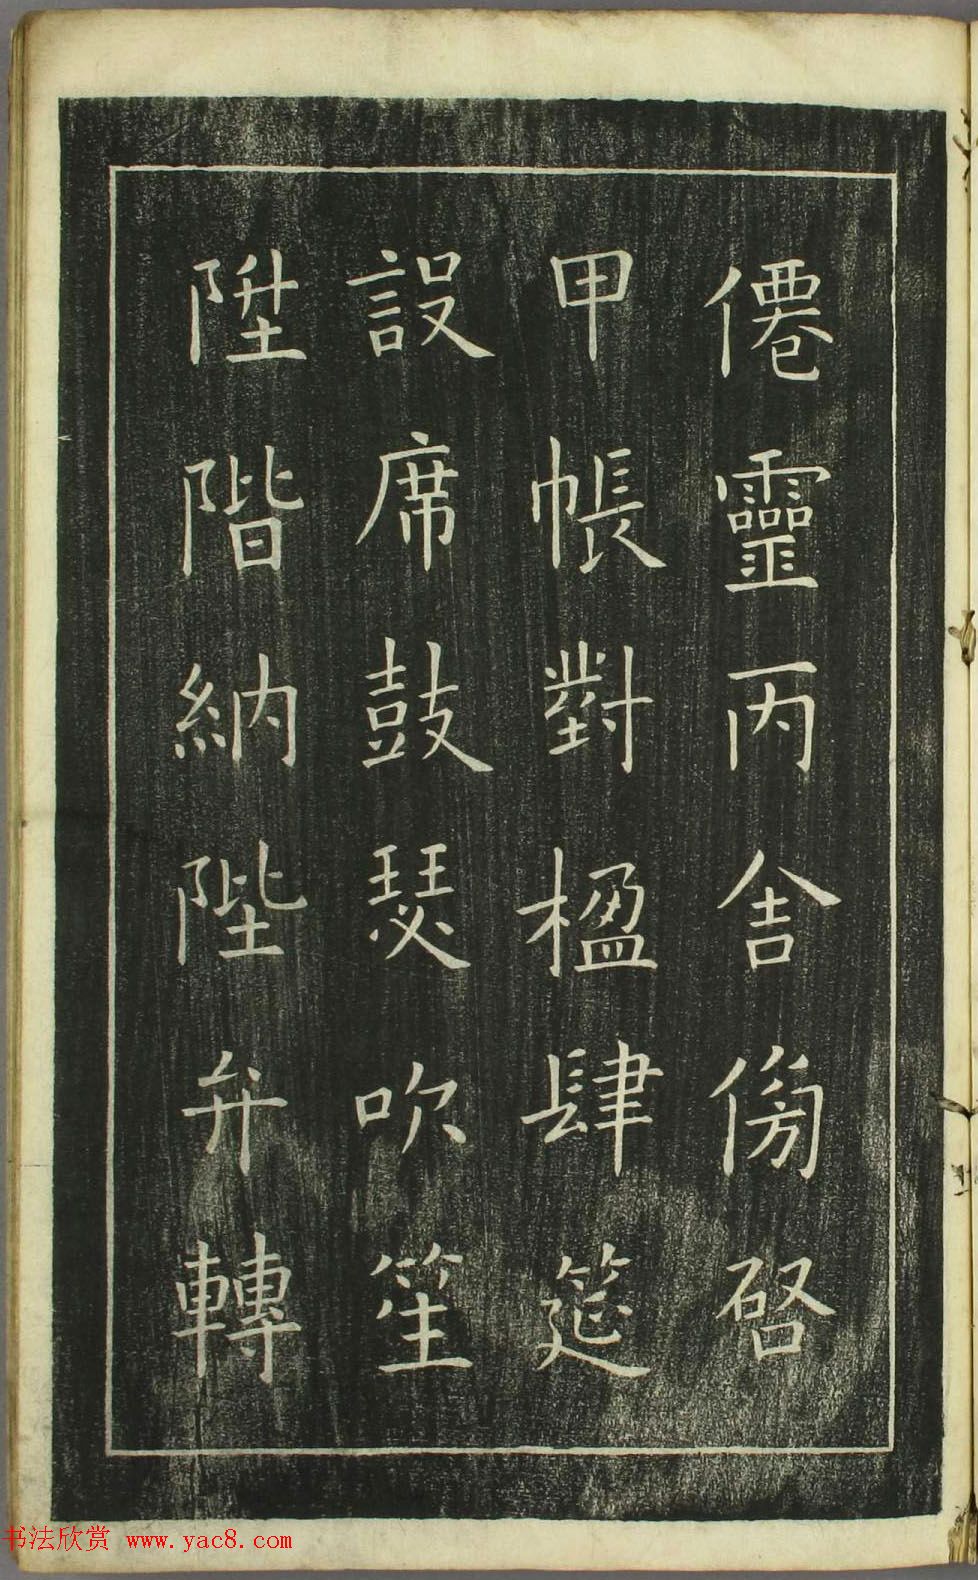 僊靈丙舍傍啓
甲帳對楹肆筵
設席鼓瑟吹笙
陞階納陛弁轉
书法欣赏 www.yac8.com